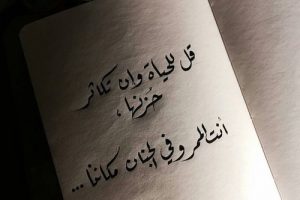 قل للحياة وان تكاثر
حُزنها ،
أنتِ الممر وفي الجنان مكاننا ...